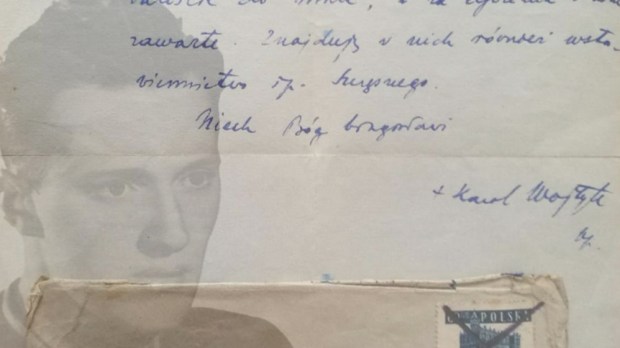 zawarte. Znajduję w nich również wsta-
wiennictwo śp. Jerzego.
Niech Bóg błogosławi
+ Karol Wojtyła
bp.
POLSKA